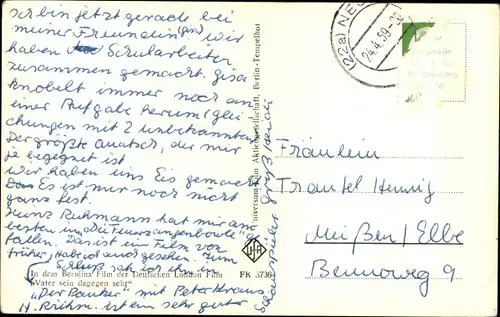 Ich bin jetzt gerade bei
meiner Freundin (Gisi) wir
haben Schularbeiten
zusammen gemacht. Gisi
knobelt immer noch an
einer Aufgabe herum (Glei
chungen mit 2 Unbekannten)
Der größte Quatsch, der mir
je begegnet ist.
Wir haben uns Eis gemacht
Es ist nur noch nicht
ganz fest.
Heinz Rühmann hat mir am
besten in "Die Feuerzangenbowle"
fallen. Das ist ein Film von
früher, habe ausgesehen. Zum
Schluß sah ich ihn in
"Der Pauker" mit Peter Kraus
H. Rühm. ist ein sehr guter
Schauspieler
In dem Berolina Film der Deutschen London Film
"Vater sein dagegen sehr"
FK 3736
UFA
Universum-Film Aktiengesellschaft, Berlin-Tempelhof
(22a) NEU
24.4.59-20
Fräulein
Trautel Hennig
Meißen/Elbe
Bennoweg 9